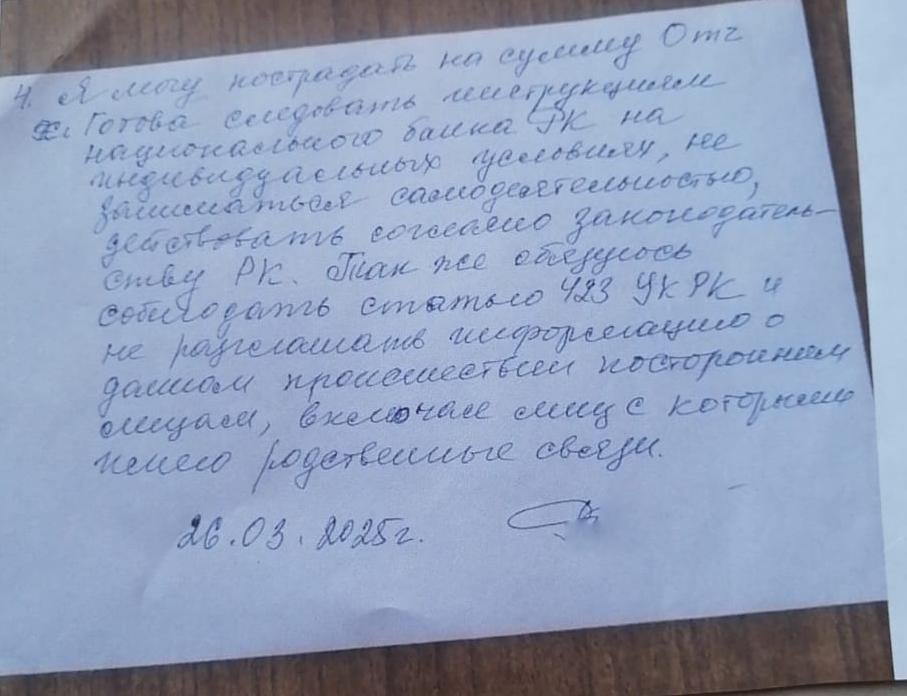 4. Я могу пострадать на сумму 0 тг
Готова следовать инструкциям
национального банка РК на
индивидуальных условиях, не
заниматься самодеятельностью,
действовать согласно законодатель-
ству РК. Так же обязуюсь
соблюдать статью 423 УК РК и
не разглашать информацию о
данном происшествии посторонним
лицам, включая лиц с которыми
имею родственные связи.
26.03.2025г.